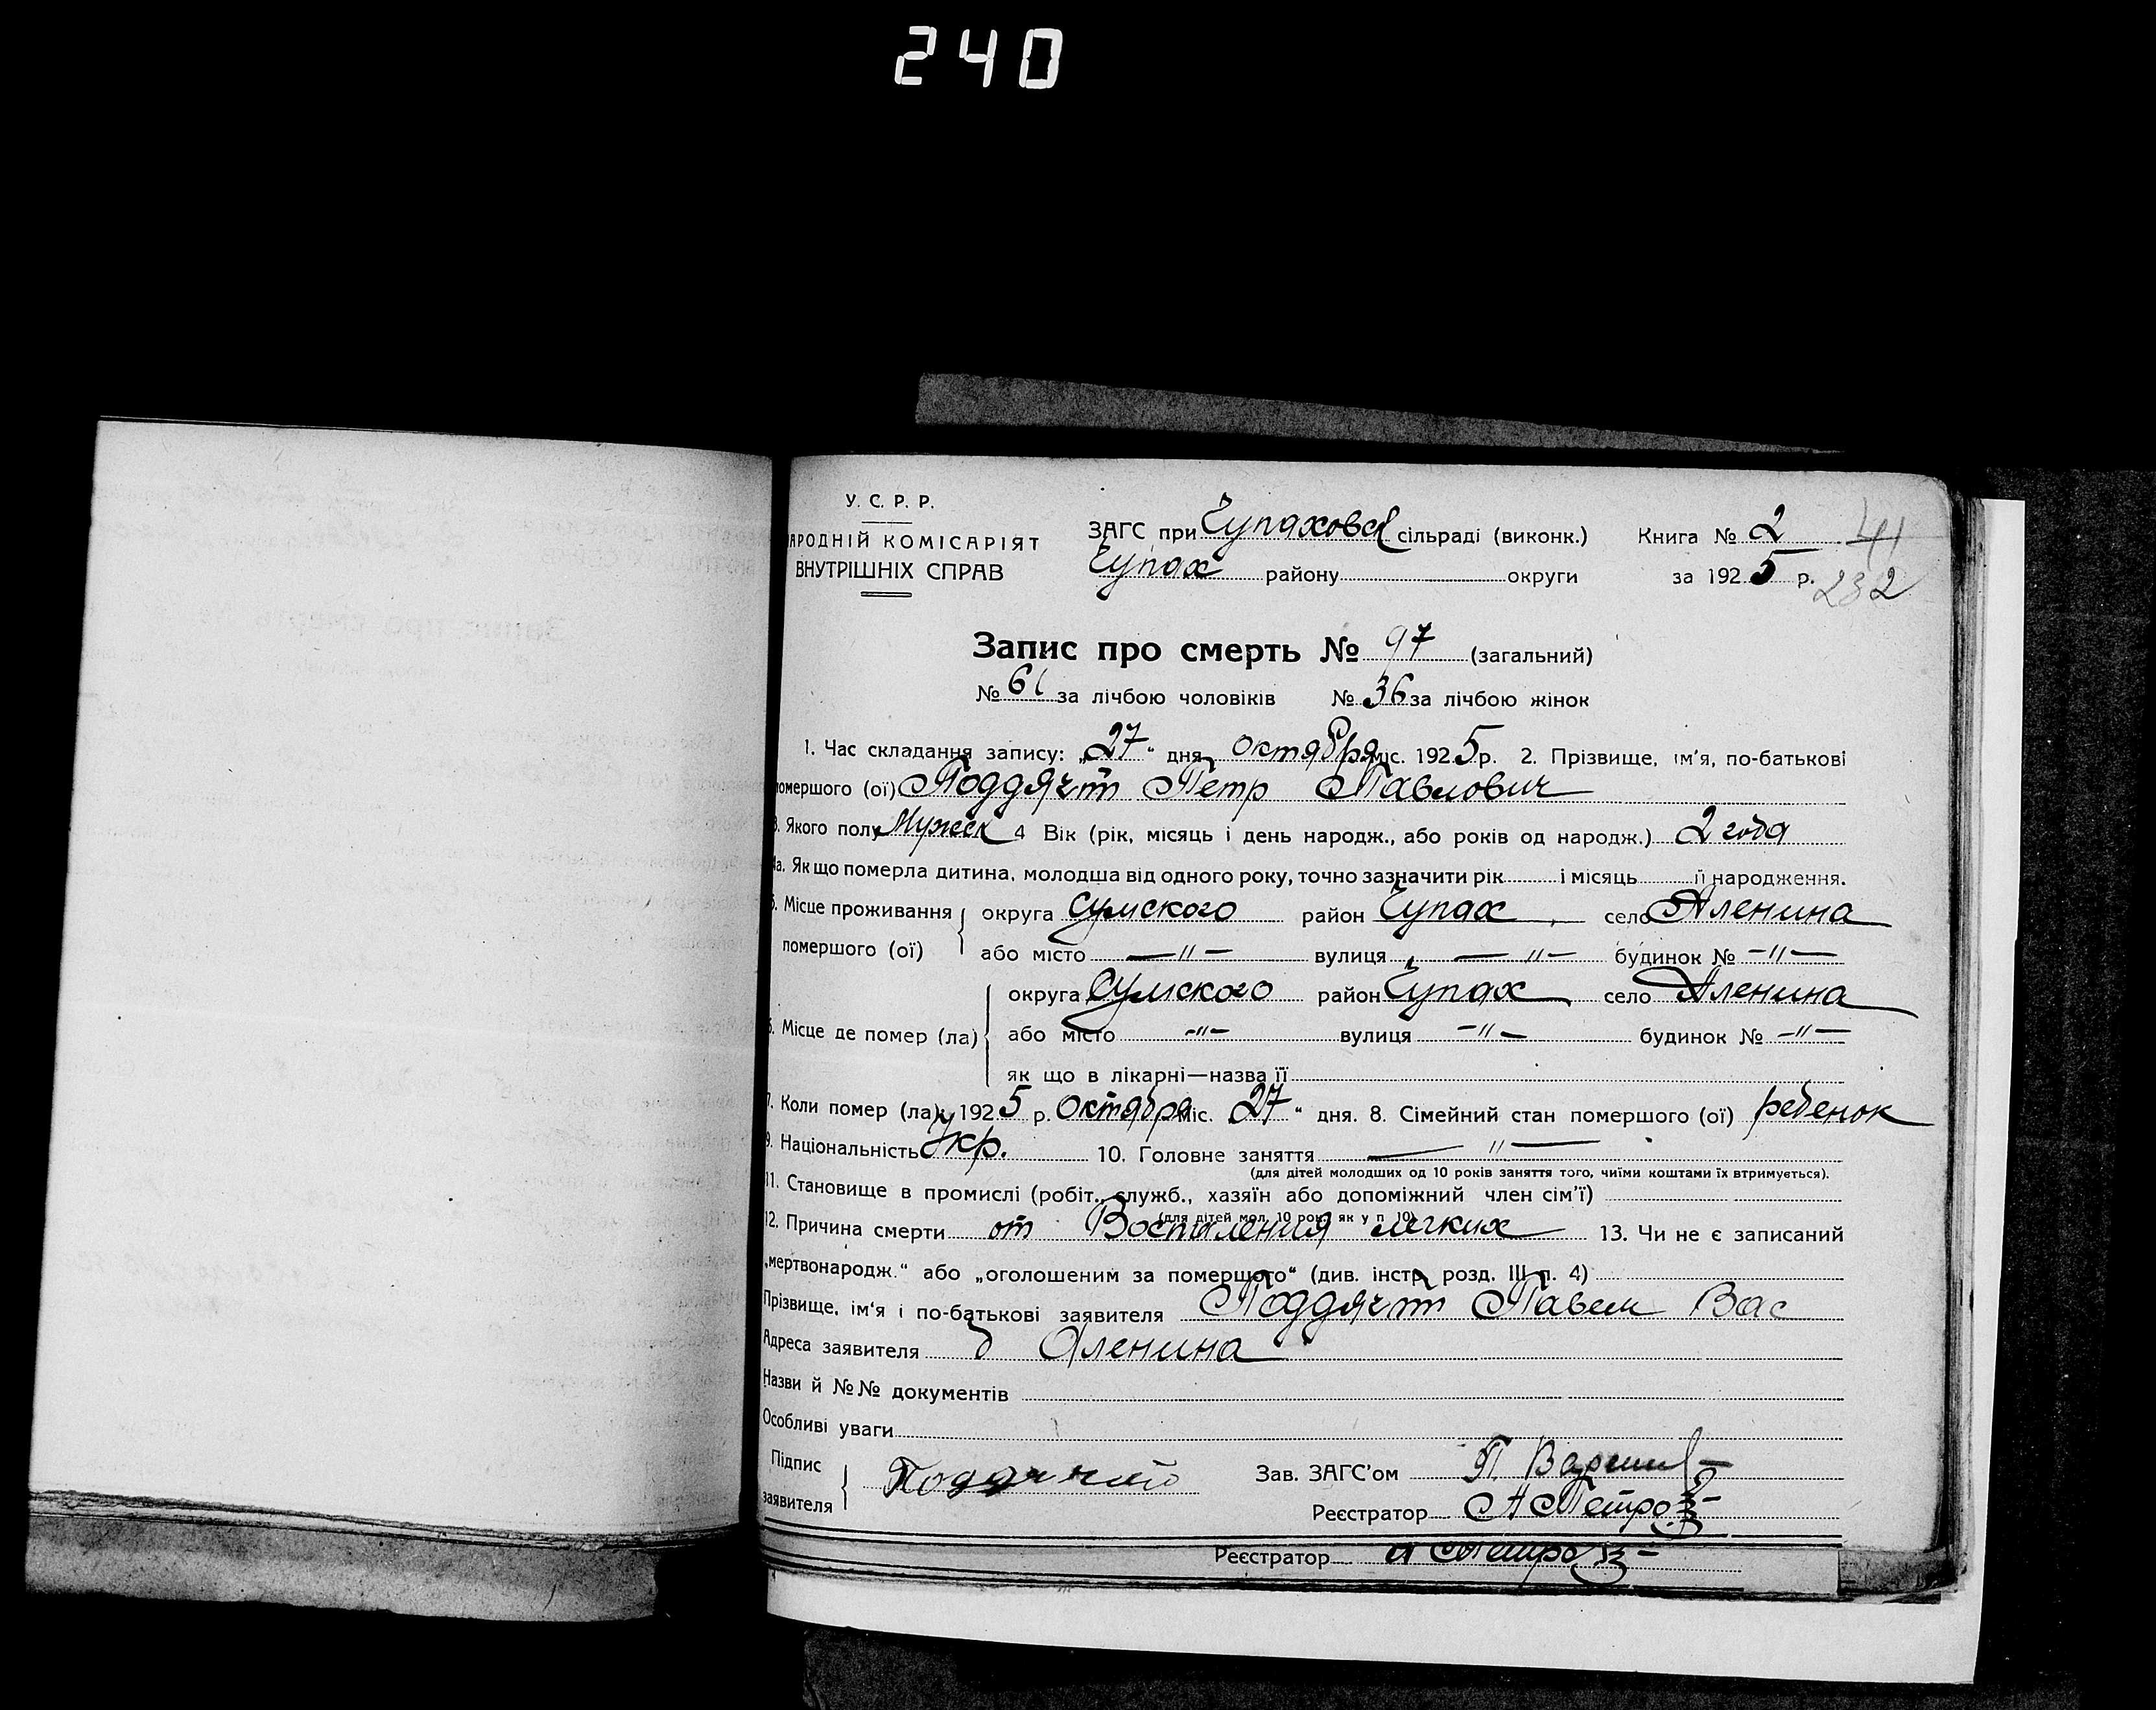 240
У. С. Р. Р.
НАРОДНІЙ КОМІСАРІЯТ
ВНУТРІШНІХ СПРАВ
ЗАГС при Чупаховс сільраді (виконк.) Книга № 2
Чупах району округи за 1925 р.
41
232
Запис про смерть № 97 (загальний)
№ 61 за лічбою чоловіків № 36 за лічбою жінок
1. Час складання запису: „27“ дня октября міс. 1925 р. 2. Прізвище, ім'я, по-батькові
помершого (ої) Поддячт Петр Павлович
3. Якого полу Мужеск 4 Вік (рік, місяць і день народж., або років од народж.) 2 года
4а. Як що померла дитина, молодша від одного року, точно зазначити рік і місяць її народження.
5. Місце проживання помершого (ої) округа Сумского район Чупах село Аленина
або місто —"— вулиця —"— будинок № —"—
6. Місце де помер (ла) округа Сумского район Чупах село Аленина
або місто —"— вулиця —"— будинок № —"—
як що в лікарні—назва її
7. Коли помер (ла): 1925 р. октября міс. 27“ дня. 8. Сімейний стан помершого (ої) ребенок
9. Національність Укр. 10. Головне заняття —"—
(для дітей молодших од 10 років заняття того, чиїми коштами їх втримується).
11. Становище в промислі (робіт., служб., хазяїн або допоміжний член сім'ї)
(для дітей мол. 10 рок. як у п 10)
12. Причина смерти от Воспаления легких 13. Чи не є записаний
„мертвонародж.“ або „оголошеним за померщого“ (див. інстр. розд. III п. 4)
Прізвище, ім'я і по-батькові заявителя Поддячт Павел Вас
Адреса заявителя д Аленина
Назви й №№ документів
Особливі уваги
Підпис заявителя
Зав. ЗАГС'ом П.
Реєстратор А Петро
Реєстратор А Петро